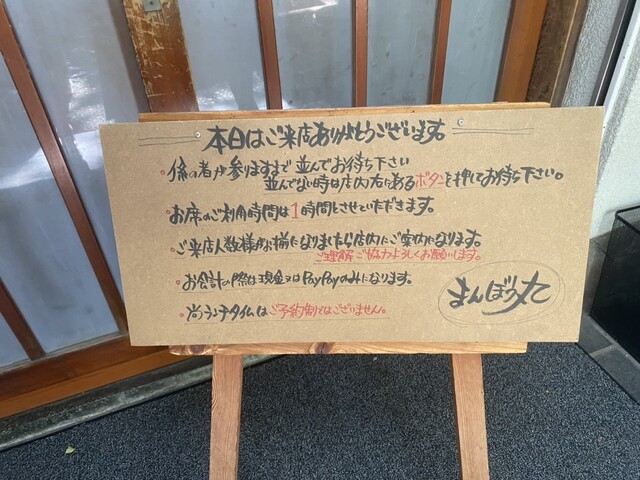 本日はご来店ありがとうございます。
・係の者が参りますまで 並んでお待ち下さい
並んでない時は店内右にあるボタンを押してお待ち下さい。
・お席のご利用時間は1時間とさせていただきます。
・ご来店人数様がお揃になりましたら店内にご案内になります。
ご理解ご協力よろしくお願いします。
・お会計の際は現金又はPayPayのみになります。
・尚ランチタイムはご予約制ではございません。
まんぼう丸